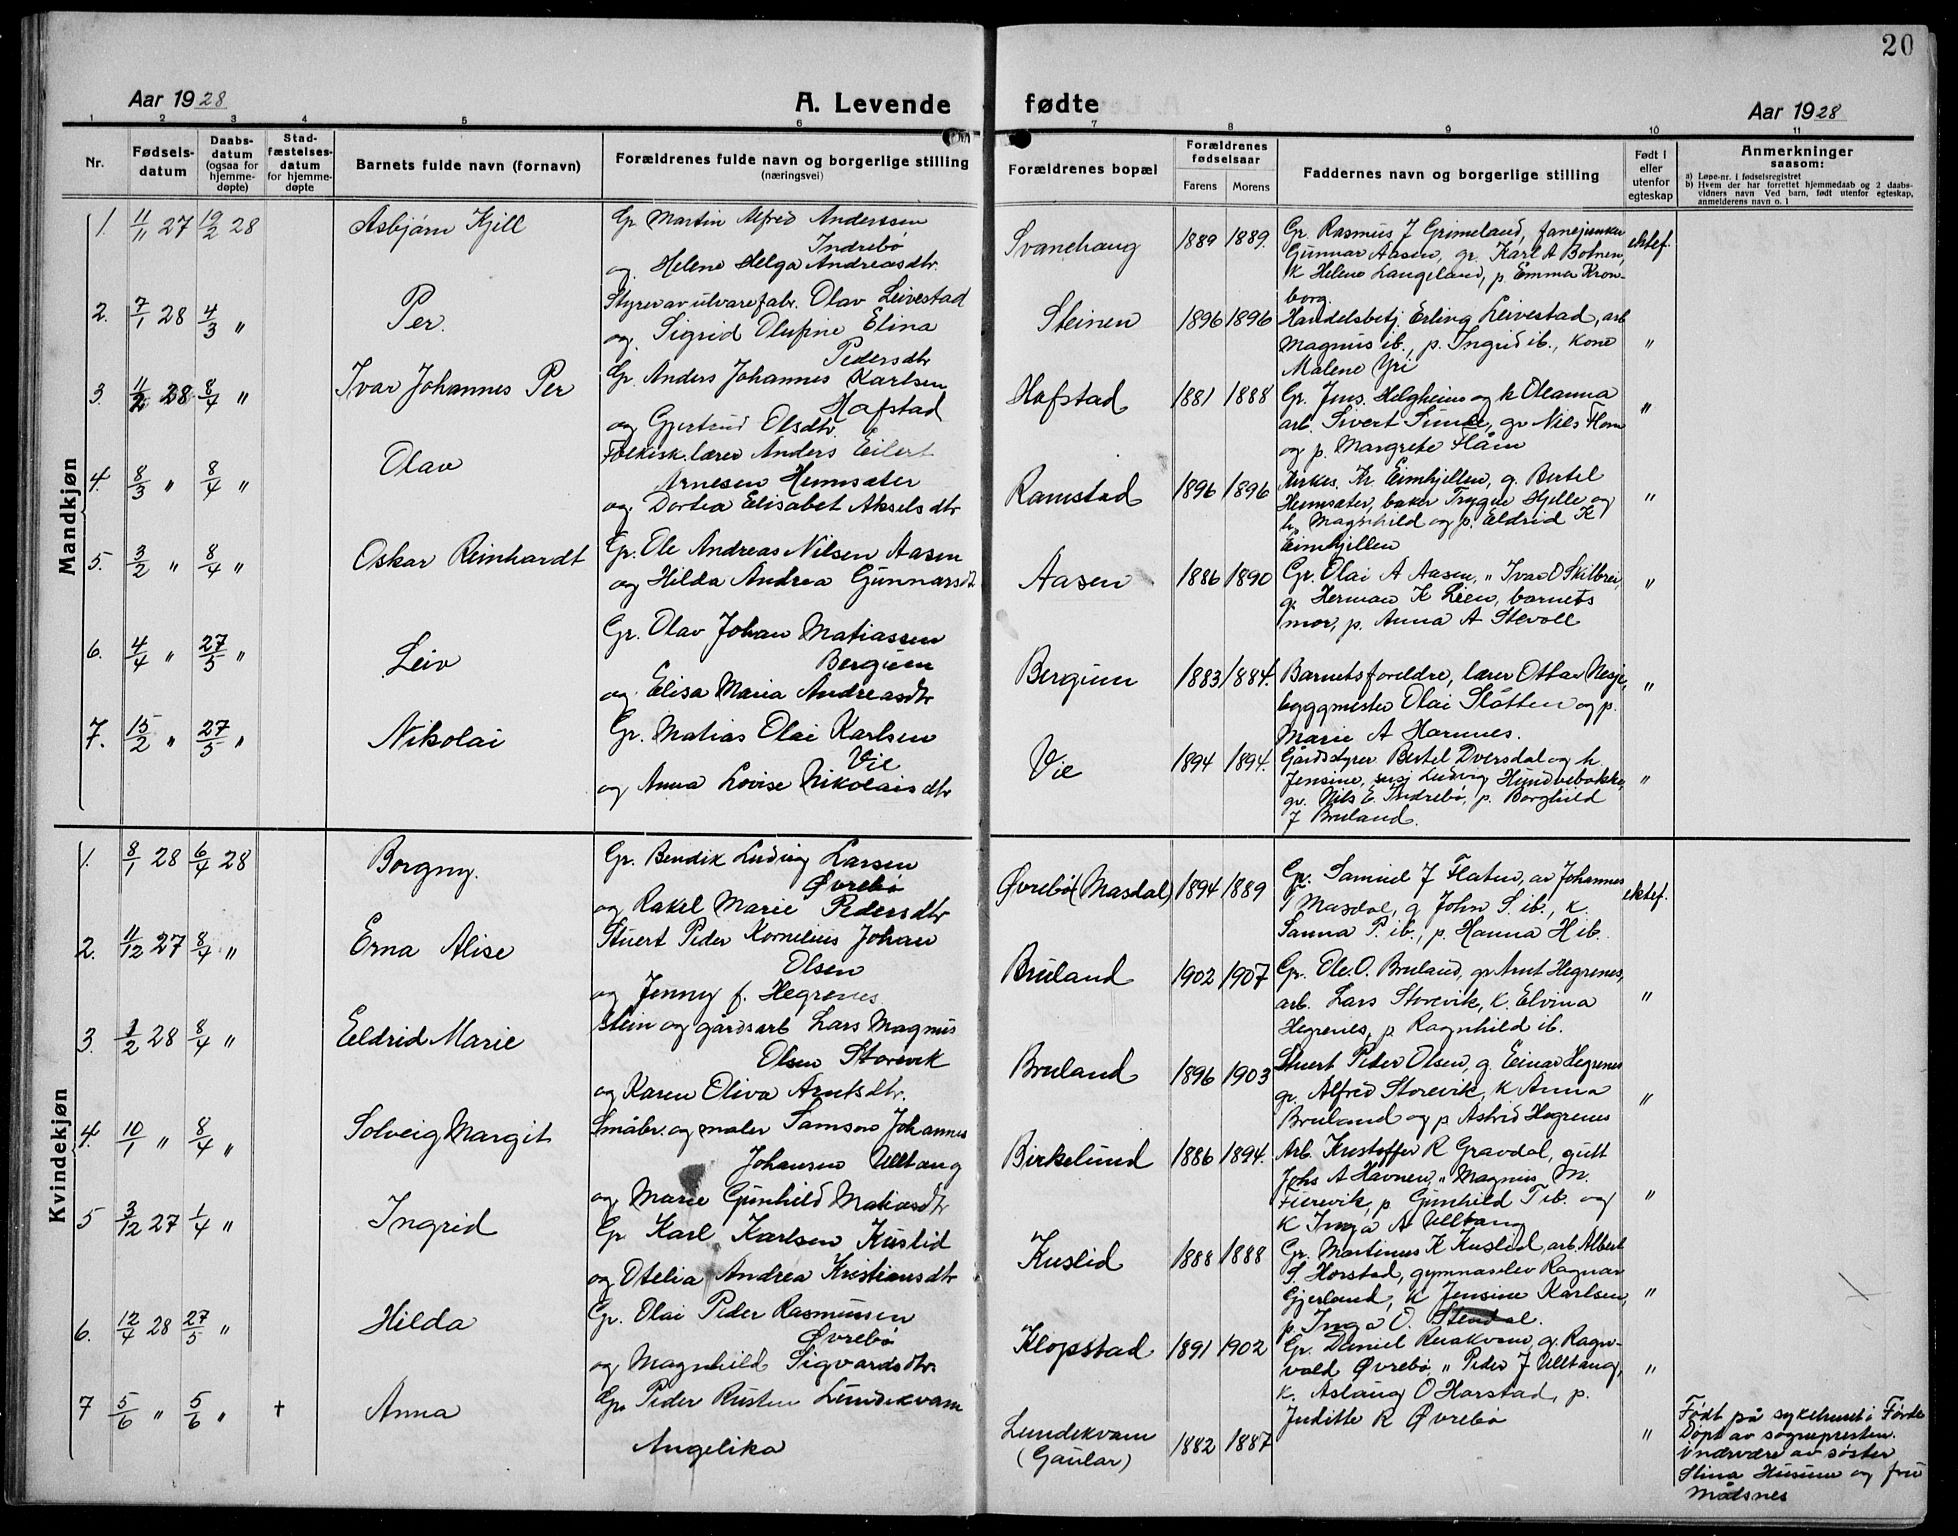 20
Aar 1928
A. Levende fødte
Aar 1928
1 2 3 4 5 6 7 8 9 10 11
Nr.
Fødsels-
datum
Daabs-
datum
(ogsaa for
hjemme-
døpte)
Stad-
fæstelses-
datum
for hjemme-
døpte
Barnets fulde navn (fornavn)
Forældrenes fulde navn og borgerlige stilling
(næringsvei)
Forældrenes bopæl
Forældrenes
fødselsaar
Farens Morens
Faddernes navn og borgerlige stilling
Født i
eller
utenfor
egteskap
Anmerkninger
saasom:
a) Løpe-nr. i fødselsregistret
b) Hvem der har forrettet hjemmedaab og 2 daabs-
vidners navn Ved barn, født utenfor egteskap,
anmelderens navn o. l
Mandkjøn
1. 11/11 27 19/2 28 Asbjørn Kjell
Gr. Martin Alfred Anderssen
Indrebø
og Helene Helga Andreasdtr.
Svanehaug 1889 1889.
Gr. Rasmus J Grimeland, fanejunker
Gunnar Aasen, gr. Karl A Botnen,
K Helene Langeland, p. Emma Kron-
borg.
ektef.
2. 7/1 28 4/3 " Per.
Styrer av ulvarefabr. Olav Leivestad
og Sigrid Olufine Elina
Pedersdtr
Steinen 1896 1896
Handelsbetj. Erling Leivestad, arb
Magnus ib., p. Ingrid ib., Kone
Malene Yri
"
3. 11/2 28 8/4 " Ivar Johannes Per
Gr. Anders Johannes Karlsen
Hafstad
og Gjertrud Olsdtr.
Hafstad 1881 1888
Gr. Jens Helgheim og h Oleanna
arb. Sivert Sunde, gr Nils Flom
og p. Margrete Flåm
"
4. 8/3 " 8/4 " Olav
Folkesk.lærer Anders Eilert
Arnesen Heimsæter
og Dortea Elisabet Akselsdtr
Ramstad 1896 1896
Kirkes. Kr. Eimhjellen, g. Bertel
Heimsæter, baker Trygve Hjelle og
h. Magnhild og p. Eldrid K
Eimhjellen
"
5. 3/2 " 8/4 " Oskar Reinhardt
Gr. Ole Andreas Nilsen Aasen
og Hilda Andrea Gunnarsdt
Aasen 1886 1890
Gr. Olai A Aasen, " Ivar O Skilbrei,
g. Herman K Lien, barnets
mor, p. Anna A Stevoll
"
6. 4/4 " 27/5 " Leiv
Gr. Olav Johan Matiassen
Bergum
og Elisa Maria Andreasdtr
Bergum 1883 1884.
Barnets foreldre, lærer Ottar Nesje,
byggmester Olai Slåtten og p.
Marie A Hornnes.
"
7. 15/2 " 27/5 " Nikolai
Gr. Matias Olai Karlsen
Vie
og Anna Lovise Nikolaisdtr
Vie 1894 1894.
Gårdsstyrer Bertel Dversdal og h
Jensine, Ludvig Hundvebakke,
gr. Nils E. Indrebø, p. Borghild
J Bruland.
"
Kvindekjøn
1. 8/1 28 6/4 28 Borgny.
Gr. Bendik Ludvig Larsen
Øvrebø
og Rakel Marie Pedersdtr
Øvrebø (Masdal) 1894 1889
Gr. Samuel J Flaten, av Johannes
T Masdal, g John S. ib., K.
Sanna P. ib., p. Hanna H ib.
ektef.
2. 11/12 27 8/4 " Erna Alise
Stuert Peder Kornelius Johan
Olsen
og Jenny f. Hegrenes.
Bruland 1902 1907
Gr. Ole O. Bruland, gr Arnt Hegrenes,
arb. Lars Storevik, K. Elvina
Hegrenes, p Ragnhild ib.
"
3. 1/2 28 8/4 " Eeldrid Marie
Stein og gårdsarb Lars Magnus
Olsen Storevik
og Karen Oliva Arntsdtr.
Bruland 1896 1903
Stuert Peder Olsen, g. Einar Hegrenes
gr. Alfred Storevik, K Anna
Bruland og p Astrid Hegrenes
"
4. 10/1 " 8/4 " Solveig Margit
Småbr. og maler Samson Johannes
Johansen Ulltang
og Marie Gunhild Matiasdtr
Birkelund 1886 1894.
Arb. Kristoffer R Gravdal, gutt
Johs A Havnen, " Magnus M.
Furevik, p Gunhild T ib. og
K Inga A Ulltang
"
5 3/12 27 1/4 " Ingrid
Gr Karl Karlsen Kuslid
og Otelia Andrea Kristiansdtr
Kuslid 1888 1888
Gr. Martinus K Kuslid, arb. Albert
S. Horstad, gymnaselev Ragnar
Gjerland, K Jensine Karlsen,
p. Inga O. Stendal.
"
6. 12/4 28 27/5 " Hilda
Gr. Olai Peder Rasmussen
Øvrebø
og Magnhild Sigvardsdtr.
Klopstad 1891 1902
Gr. Daniel Ruakvam, g. Ragn-
vald Øvrebø, " Peder J Ulltang,
K. Aslaug O Horstad, p.
Juditte R Øvrebø
"
7 5/6 " 5/6 " + Anna
Gr. Peder Rusten Lundekvam
Angelika
Lundekvam
(Gaular)
1882 1887
"
Født på sykehuset i Førde
Døpt av sognepresten.
i nærvære av søster
Stina Husum og fru
Mådsnes